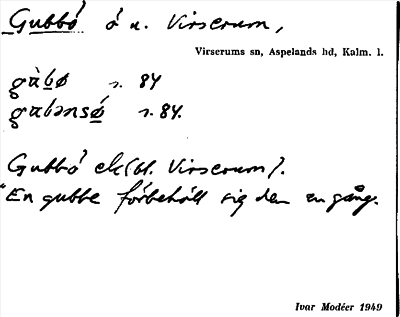 Gubbö ö u. Virserum,
Virserums sn, Aspelands hd, Kalm. l.
gùbø s. 84
gubənsǿ s. 84.
Gubbö ek (bl. Virserum).
"En gubbe förbehöll sig den en gång.
Ivar Modéer 1949